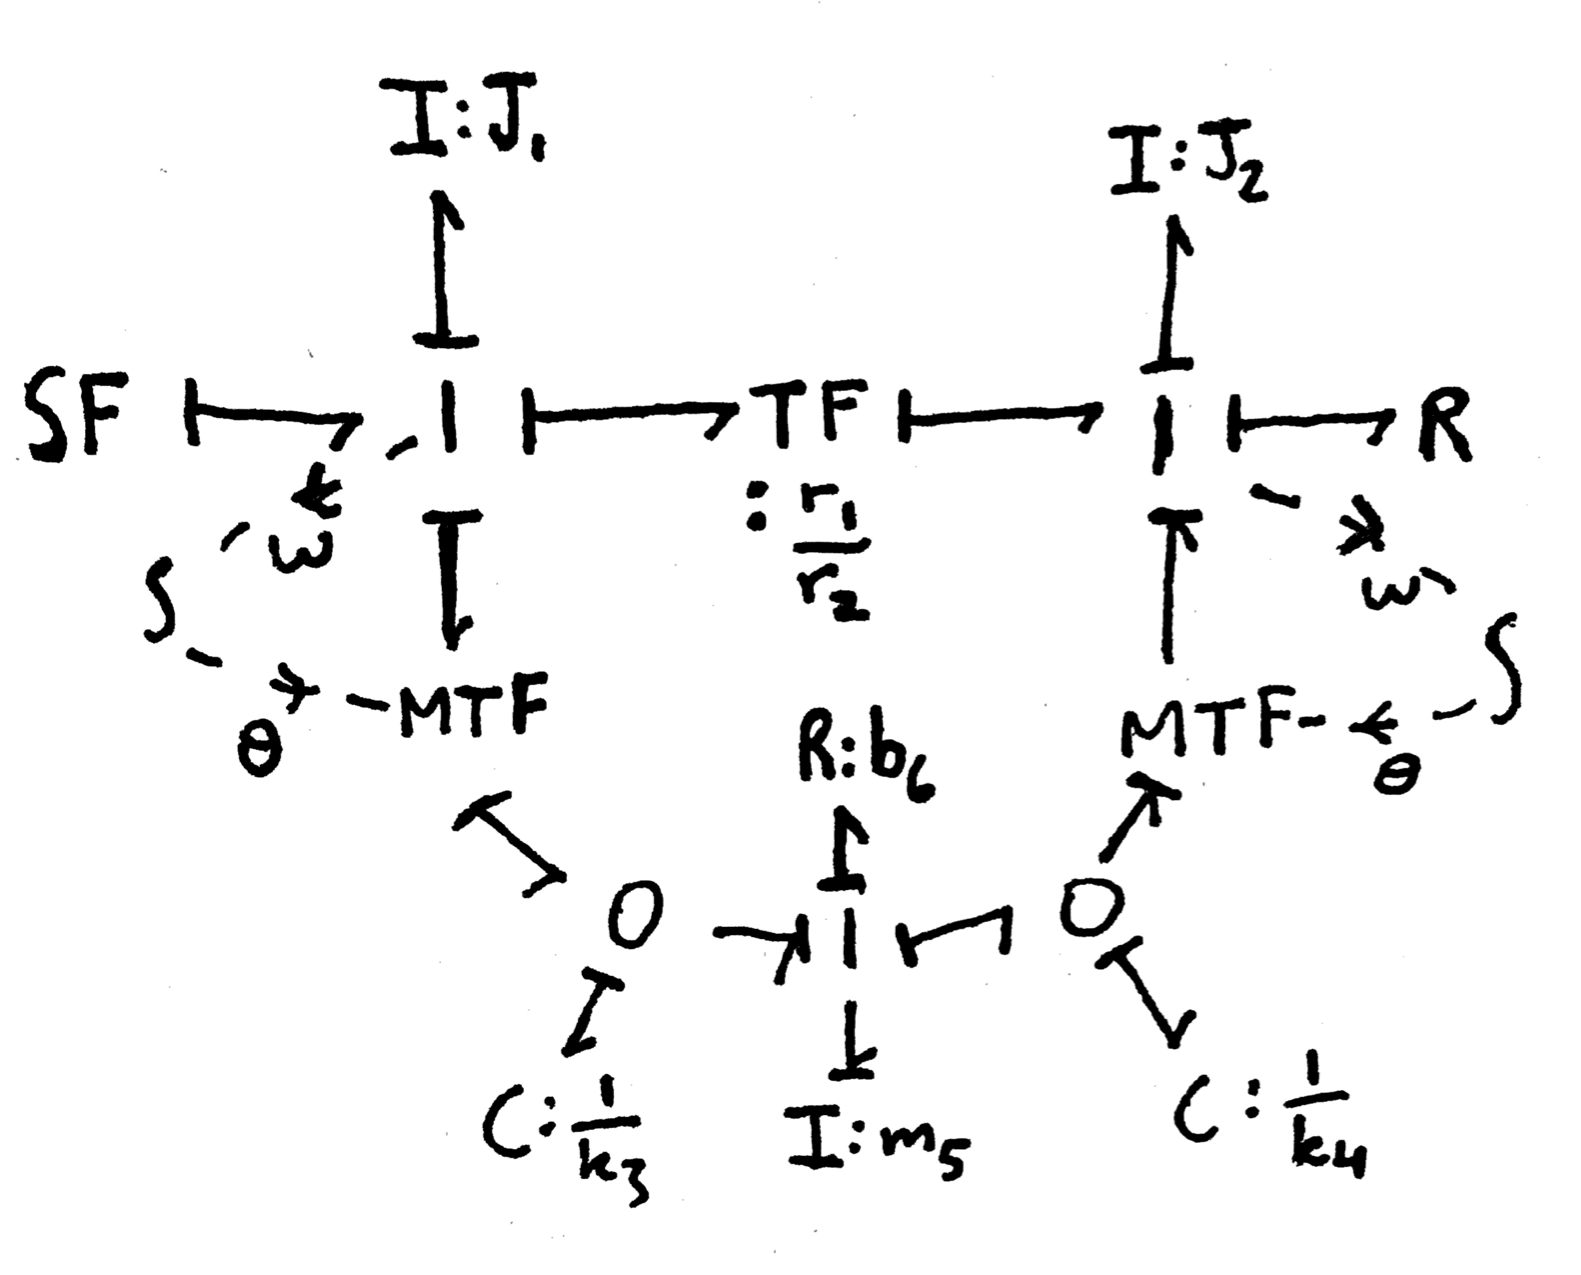 I:J₁
I:J₂
SF 1 TF 1 R
: r₁/r₂
ω
ω
∫
∫
θ
MTF
MTF
θ
R:b₆
0 1 0
C:1/k₃
I:m₅
C:1/k₄